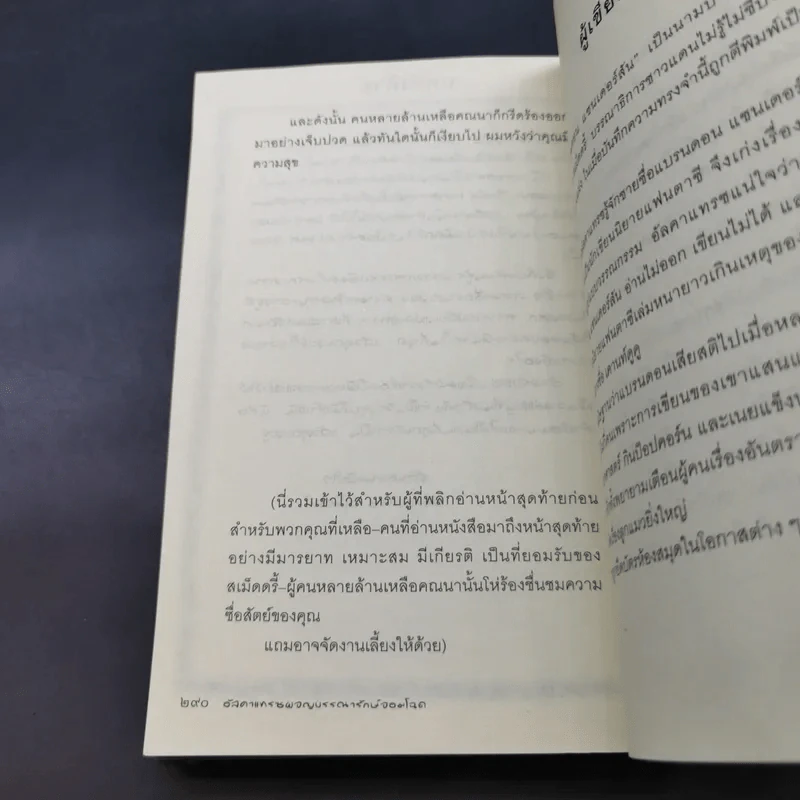 และดังนั้น คนหลายล้านเหลือคณนาก็กรีดร้องออก
มาอย่างเจ็บปวด แล้วทันใดนั้นก็เงียบไป ผมหวังว่าคุณมี
ความสุข
(นี่รวมเข้าไว้สำหรับผู้ที่พลิกอ่านหน้าสุดท้ายก่อน
สำหรับพวกคุณที่เหลือ–คนที่อ่านหนังสือมาถึงหน้าสุดท้าย
อย่างมีมารยาท เหมาะสม มีเกียรติ เป็นที่ยอมรับของ
สเม็ดดรี้–ผู้คนหลายล้านเหลือคณนานั้นโห่ร้องชื่นชมความ
ซื่อสัตย์ของคุณ
แถมอาจจัดงานเลี้ยงให้ด้วย)
๒๙๐ อัลคาแทรซผจญบรรณารักษ์จอมโฉด
ผู้เขีย
แซนเดอร์สัน" เป็นนามป
บรรณาธิการชาวแดนไม่รู้ไม่ชี้บ
ในเมื่อบันทึกความทรงจำนี้ถูกตีพิมพ์เป็
รู้จักชายชื่อแบรนดอน แซนเดอร์
นักเขียนนิยายแฟนตาซี จึงเก่งเรื่อง
วรรณกรรม อัลคาแทรซแน่ใจว่า
อ่านไม่ออก เขียนไม่ได้ แล
แฟนตาซีเล่มหนายาวเกินเหตุของ
ฐานว่าแบรนดอนเสียสติไปเมื่อหล
เพราะการเขียนของเขาแสนแ
กินป๊อปคอร์น และเนยแข็ง
พยายามเตือนผู้คนเรื่องอันตรา
ลูกแมวยิ่งใหญ่
บัตรห้องสมุดในโอกาสต่าง ๆ